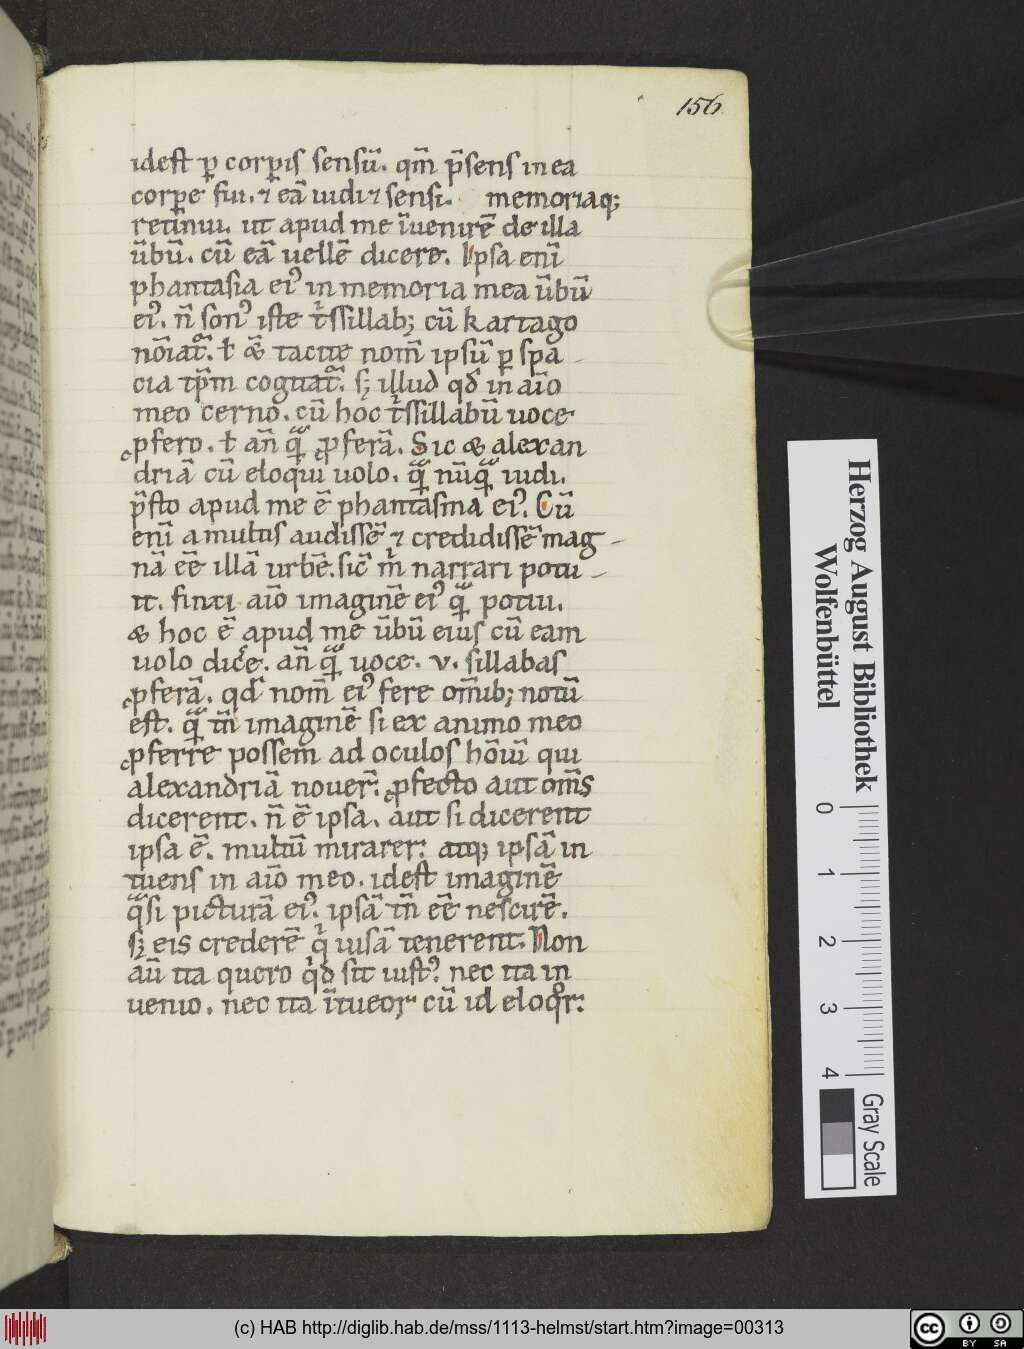 156
idest ꝑ corꝑis sensū. qm̄ p̄sens in ea
corꝑe fui. ⁊ eā uidi ⁊ sensi. memoriaq;
retinui. ut apud me īuenirē de illa
ūbū. cū eā uellē dicere. Ipsa eni̅
phantasia eiꝰ in memoria mea ūbū
eiꝰ. n̄ sonꝰ iste tͥssillab; cū kartago
nōiat᷑. ł & tacite nom̄ ipsū ꝑ spa
cia tp̄m cogitat᷑. s; illud qđ in aīo
meo cerno. cū hoc tͥssillabū uoce
ꝓfero. ł an̄ qᷓ ꝓferā. Sic & alexan
driā cū eloqui uolo. qᷓ nūqᷓ uidi.
p̄sto apud me ē phantasma eiꝰ. Cū
enī a multis audissē ⁊ credidissē mag
nā eē illā urbē. sic̄ mͥ narrari potu
it. finxi aīo imaginē eiꝰ qᷓ potui.
& hoc ē apud me ūbū eius cū eam
uolo dic̄e. an̄ qᷓ uoce .v. sillabas
ꝓferā. qđ nom̄ eiꝰ fere om̄ib; notū
est. qᷓ tn̄ imaginē si ex animo meo
ꝓferre possem ad oculos hōiū qui
alexandriā nouer̄. ꝓfecto aut om̄s
dicerent. n̄ ē ipsa. aut si dicerent
ipsa ē. multū mirarer: atq; ipsā in
tuens in aīo meo. idest imaginē
qᷓsi picturā eiꝰ. ipsā tn̄ eē nescirē.
s; eis crederē qͥ uisā tenerent. Non
aū ita quero qͥd sit iustꝰ nec ita in
uenio. nec ita ītueor cū id eloqͦr:
Herzog August Bibliothek
Wolfenbüttel
0 1 2 3 4
Gray Scale
(c) HAB http://diglib.hab.de/mss/1113-helmst/start.htm?image=00313
cc BY SA